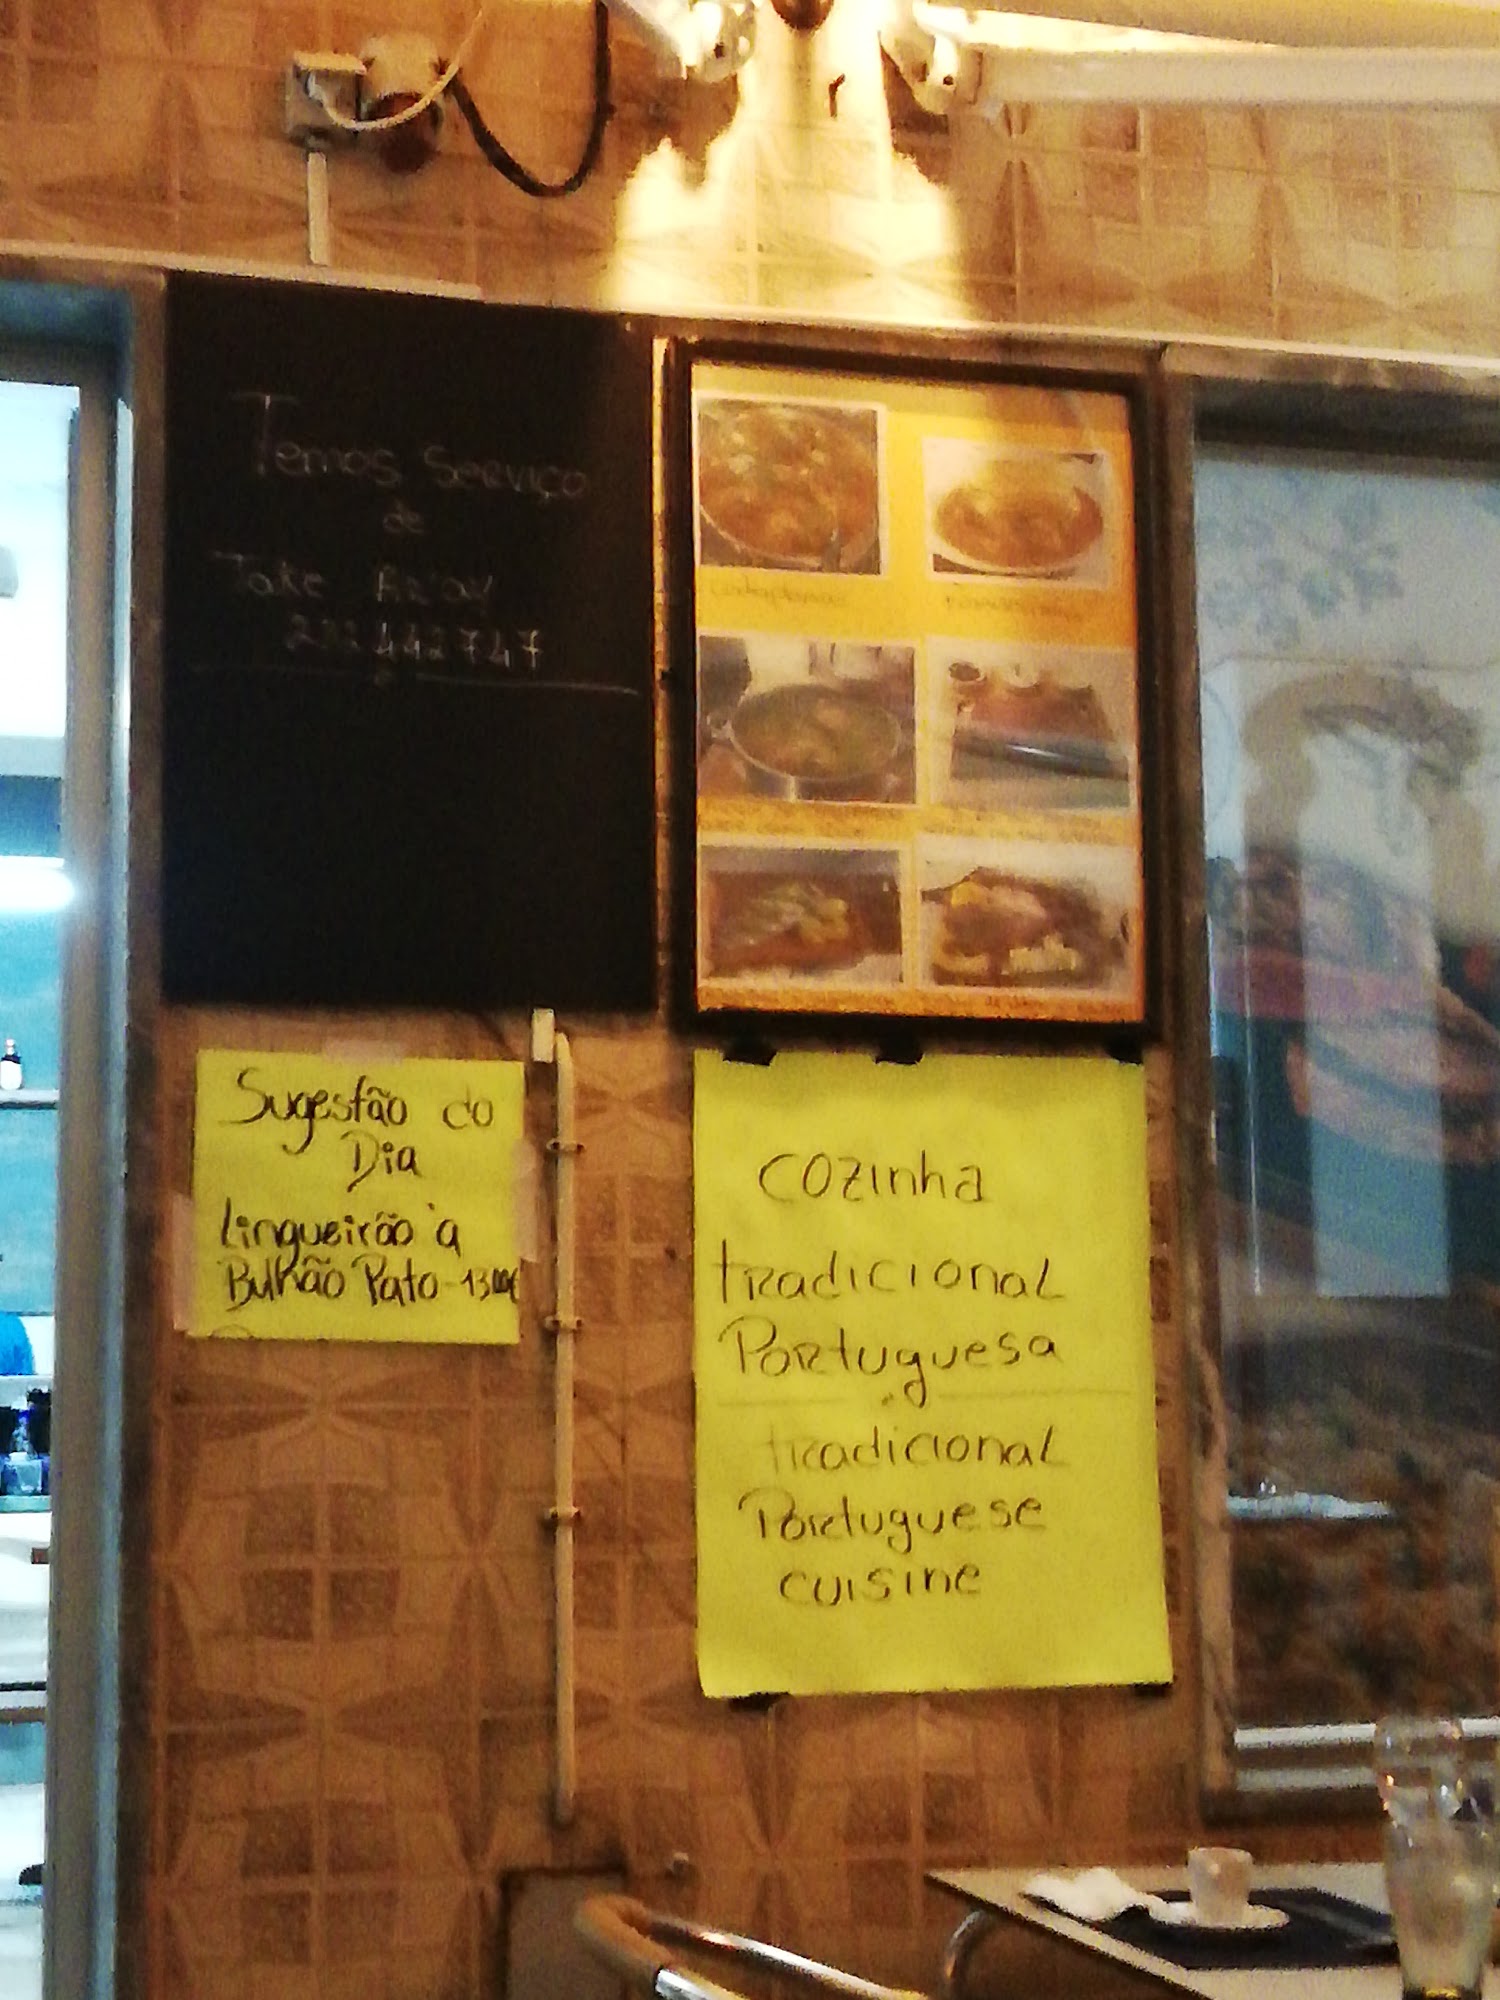 Temos Serviço
de
Take Away
232442747
Sugestão do
Dia
Lingueirão à
Bulhão Pato - 13,00€
Cozinha
tradicional
Portuguesa
tradicional
Portuguese
cuisine